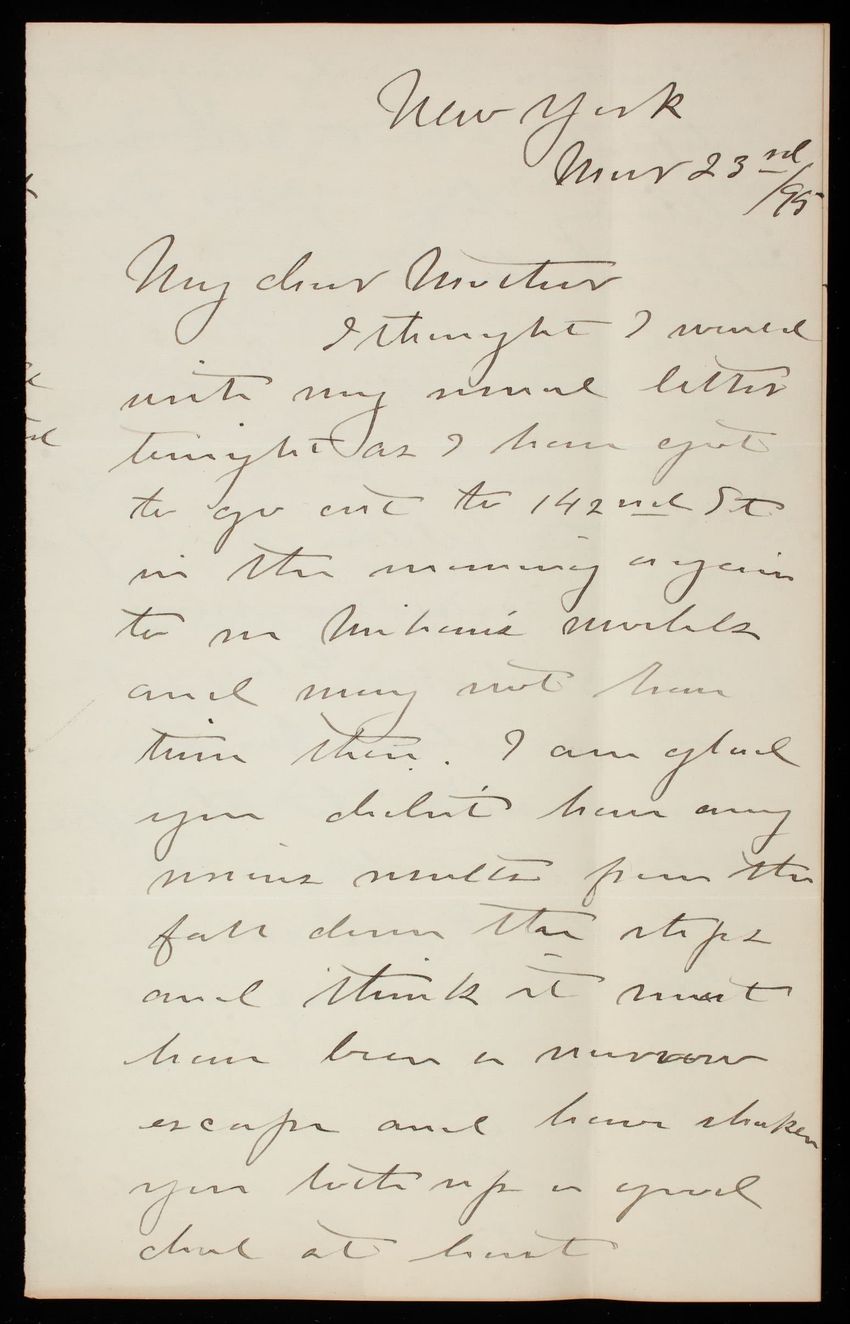 New York
Mar 23rd/95
My dear Mother
I thought I would
write my usual letter
tonight as I have got
to go out to 142nd St
in the morning again
to see models
and may not have
time then. I am glad
you didn't have any
serious results from the
fall down the steps
and think it must
have been a narrow
escape and have shaken
you both up a good
deal at least